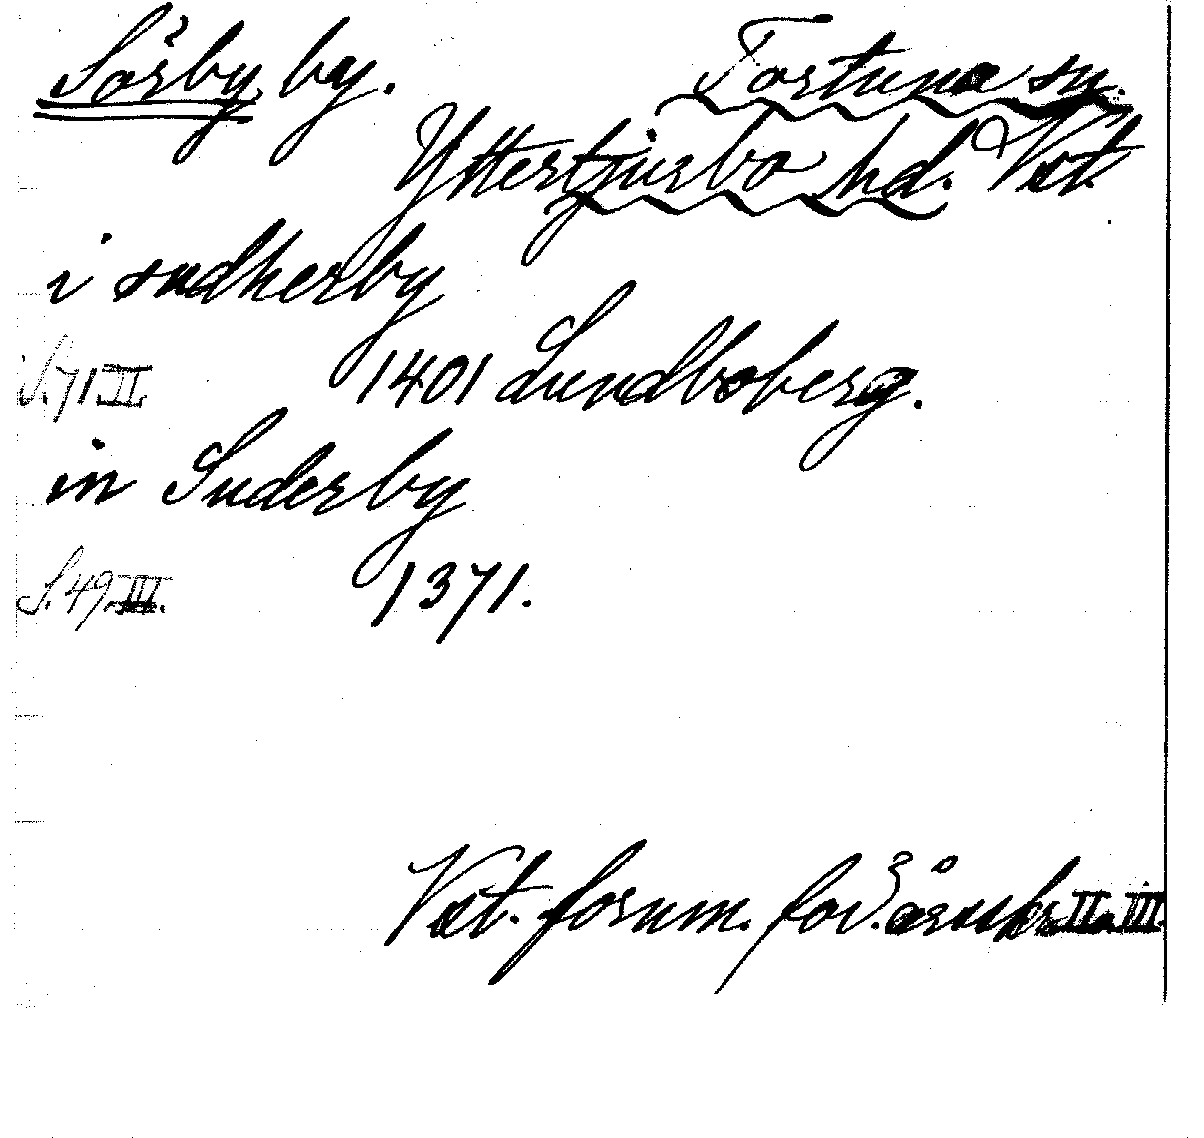 Sörby by. Tortuna sn.
Yttertjurbo hd. Väst.
i sudherby
S. 71 II. 1401 Lundbsberg.
in Suderby
S. 49 III. 1371.
Väst. fornm. för. årsskr II o III.